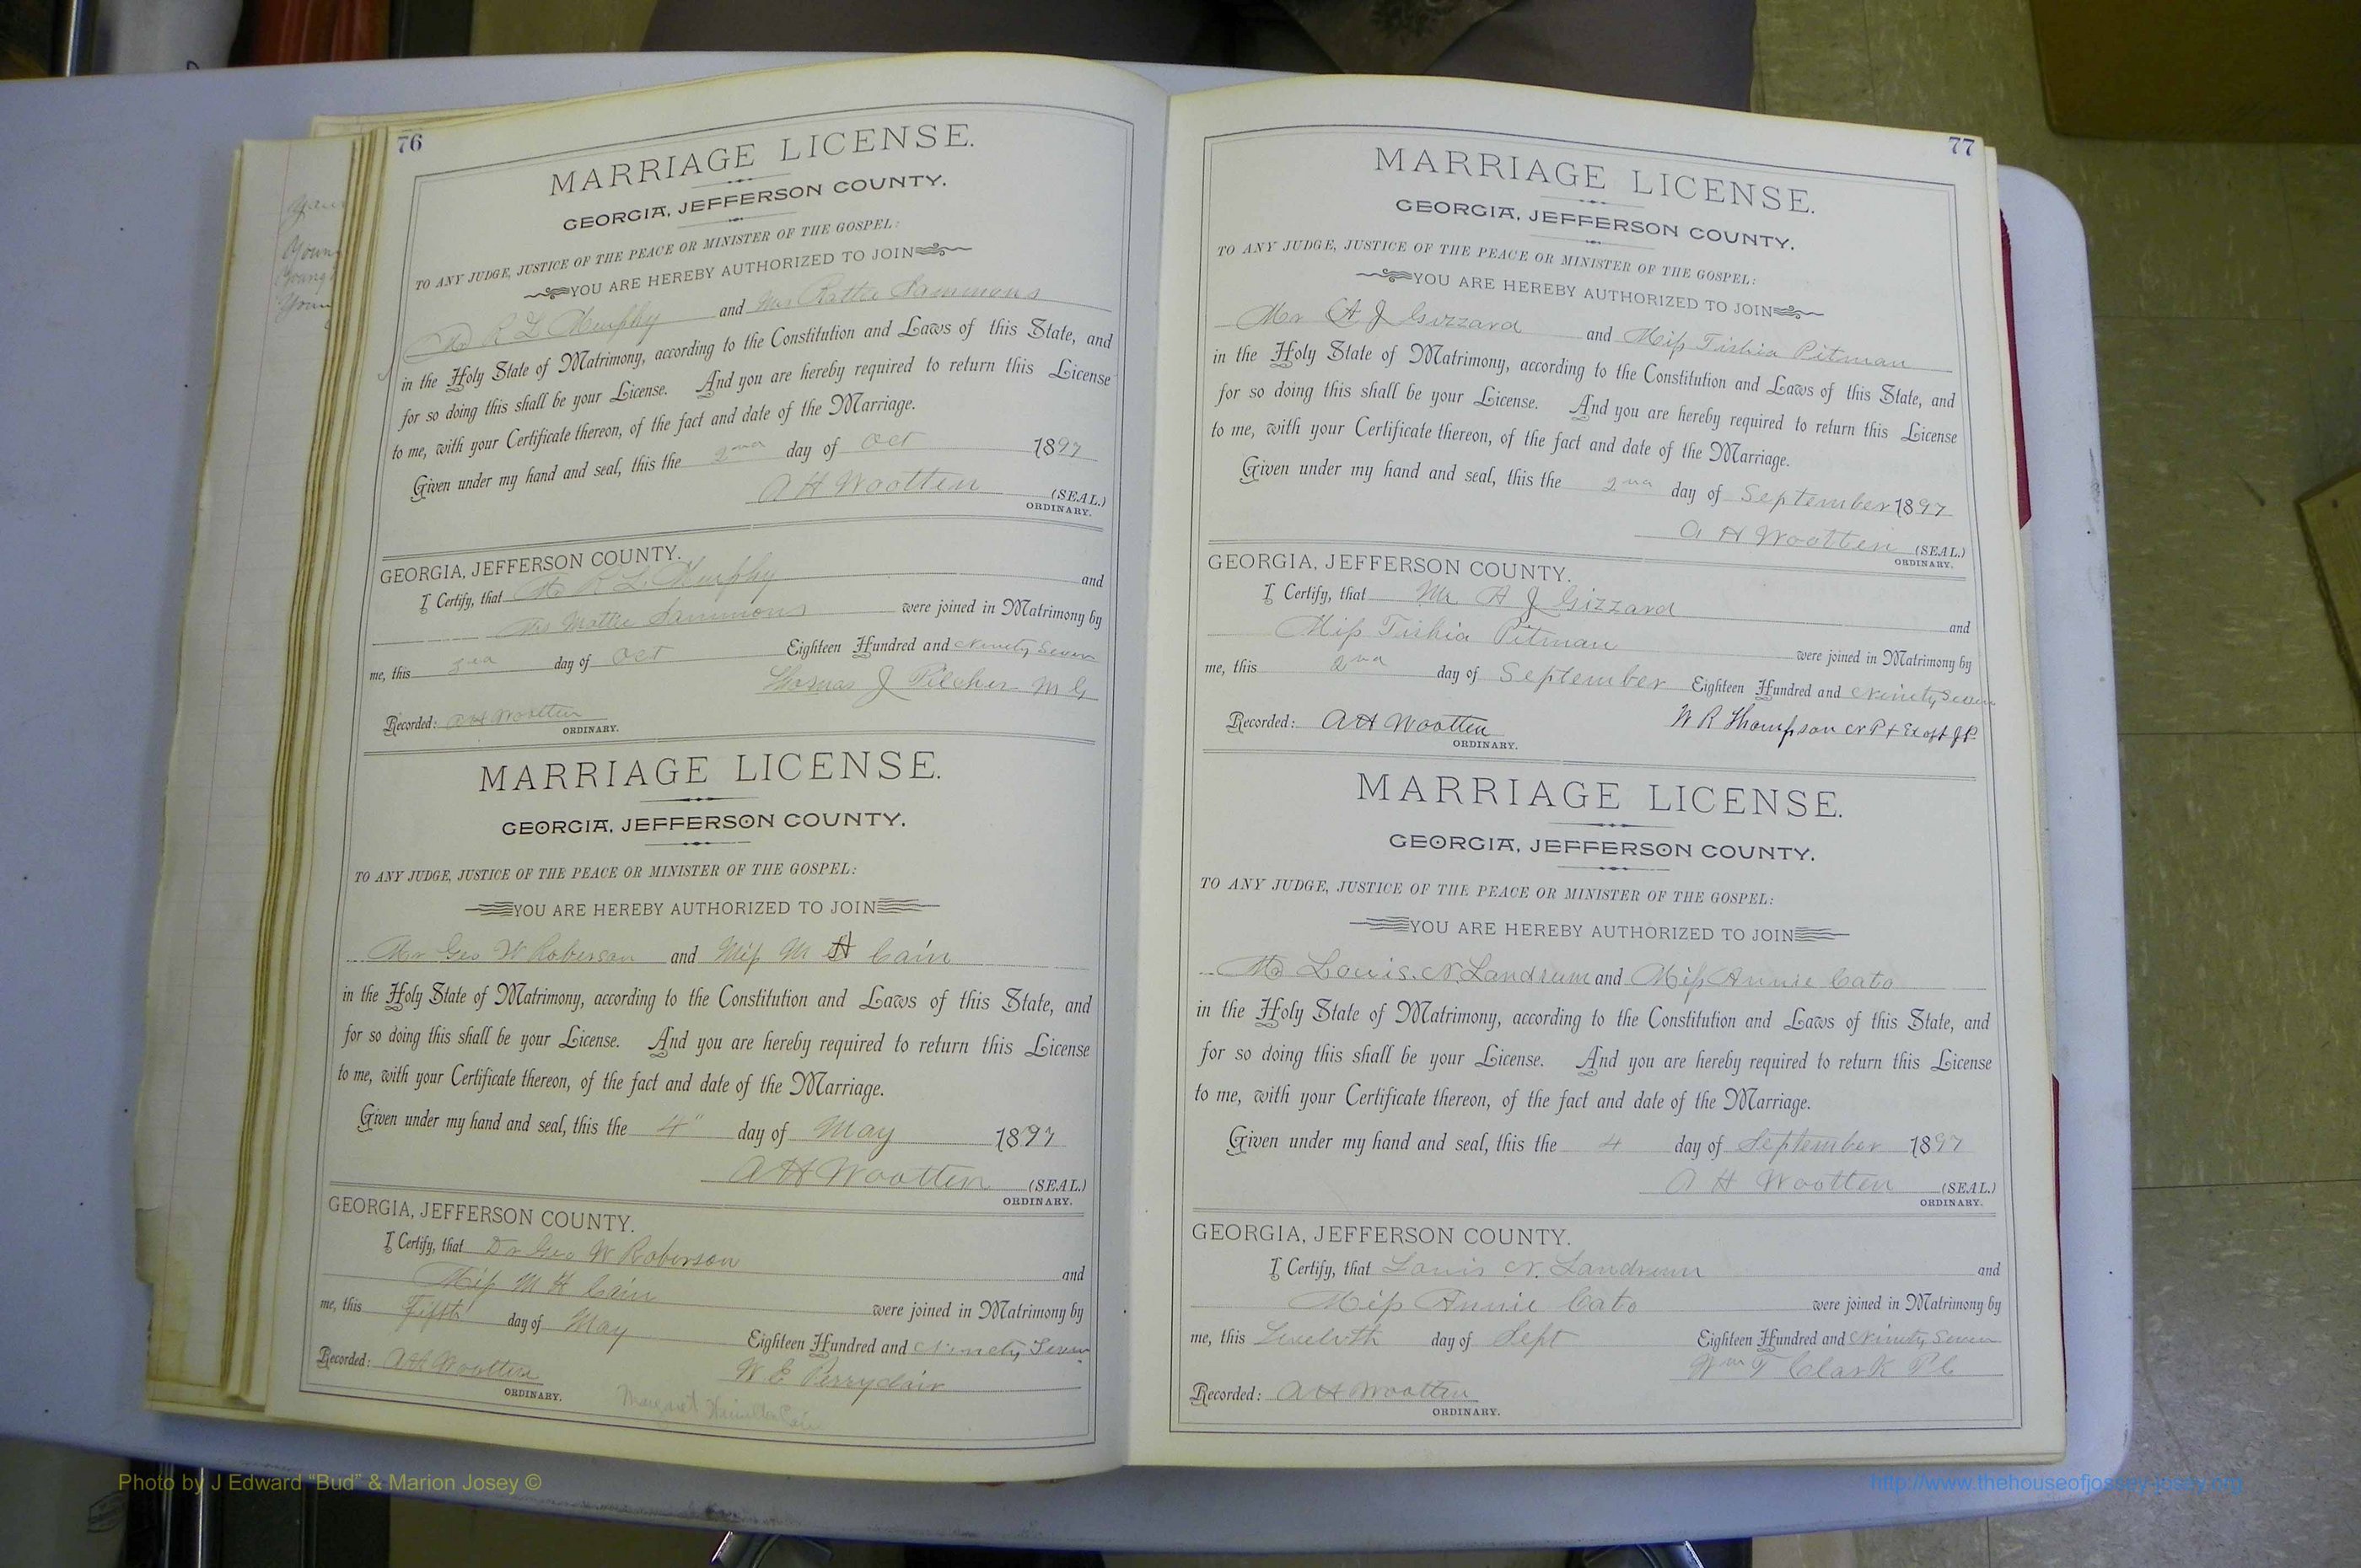 76
MARRIAGE LICENSE.
GEORGIA, JEFFERSON COUNTY.
TO ANY JUDGE, JUSTICE OF THE PEACE OR MINISTER OF THE GOSPEL:
YOU ARE HEREBY AUTHORIZED TO JOIN
Mr R L Murphy and Mrs Sammons
in the Holy State of Matrimony, according to the Constitution and Laws of this State, and
for so doing this shall be your License. And you are hereby required to return this License
to me, with your Certificate thereon, of the fact and date of the Marriage.
Given under my hand and seal, this the 2nd day of Oct 1897
A H Wootten (SEAL.)
ORDINARY.
GEORGIA, JEFFERSON COUNTY.
I Certify, that Mr R L Murphy and
Mrs Mattie Sammons were joined in Matrimony by
me, this 3rd day of Oct Eighteen Hundred and Ninety Seven
Thomas J Pilcher M G
Recorded: A H Wootten
ORDINARY.
MARRIAGE LICENSE.
GEORGIA, JEFFERSON COUNTY.
TO ANY JUDGE, JUSTICE OF THE PEACE OR MINISTER OF THE GOSPEL:
YOU ARE HEREBY AUTHORIZED TO JOIN
Mr Geo W Roberson and Miss M H Cain
in the Holy State of Matrimony, according to the Constitution and Laws of this State, and
for so doing this shall be your License. And you are hereby required to return this License
to me, with your Certificate thereon, of the fact and date of the Marriage.
Given under my hand and seal, this the 4" day of May 1897
A H Wootten (SEAL.)
ORDINARY.
GEORGIA, JEFFERSON COUNTY.
I Certify, that Dr Geo W Roberson and
Miss M H Cain were joined in Matrimony by
me, this Fifth day of May Eighteen Hundred and Ninety Seven
W. E Perryclair
Recorded: A H Wootten
ORDINARY.
Margaret Hamilton Cain
77
MARRIAGE LICENSE.
GEORGIA, JEFFERSON COUNTY.
TO ANY JUDGE, JUSTICE OF THE PEACE OR MINISTER OF THE GOSPEL:
YOU ARE HEREBY AUTHORIZED TO JOIN
Mr A J Gizzard and Miss Tishia Pitman
in the Holy State of Matrimony, according to the Constitution and Laws of this State, and
for so doing this shall be your License. And you are hereby required to return this License
to me, with your Certificate thereon, of the fact and date of the Marriage.
Given under my hand and seal, this the 2nd day of September 1897
A H Wootten (SEAL.)
ORDINARY.
GEORGIA, JEFFERSON COUNTY.
I Certify, that Mr A J Gizzard and
Miss Tishia Pitman were joined in Matrimony by
me, this 2nd day of September Eighteen Hundred and Ninety Seven
W R Thompson N P & Ex off J P.
Recorded: A H Wootten
ORDINARY.
MARRIAGE LICENSE.
GEORGIA, JEFFERSON COUNTY.
TO ANY JUDGE, JUSTICE OF THE PEACE OR MINISTER OF THE GOSPEL:
YOU ARE HEREBY AUTHORIZED TO JOIN
Mr Louis. N. Landrum and Miss Annie Cato
in the Holy State of Matrimony, according to the Constitution and Laws of this State, and
for so doing this shall be your License. And you are hereby required to return this License
to me, with your Certificate thereon, of the fact and date of the Marriage.
Given under my hand and seal, this the 4 day of September 1897
A H Wootten (SEAL.)
ORDINARY.
GEORGIA, JEFFERSON COUNTY.
I Certify, that Louis N. Landrum and
Miss Annie Cato were joined in Matrimony by
me, this day of Sept Eighteen Hundred and Ninety Seven
Wm T Clark P C
Recorded: A H Wootten
ORDINARY.
Photo by J Edward “Bud” & Marion Josey ©
http://www.thehouseofjossey-josey.org